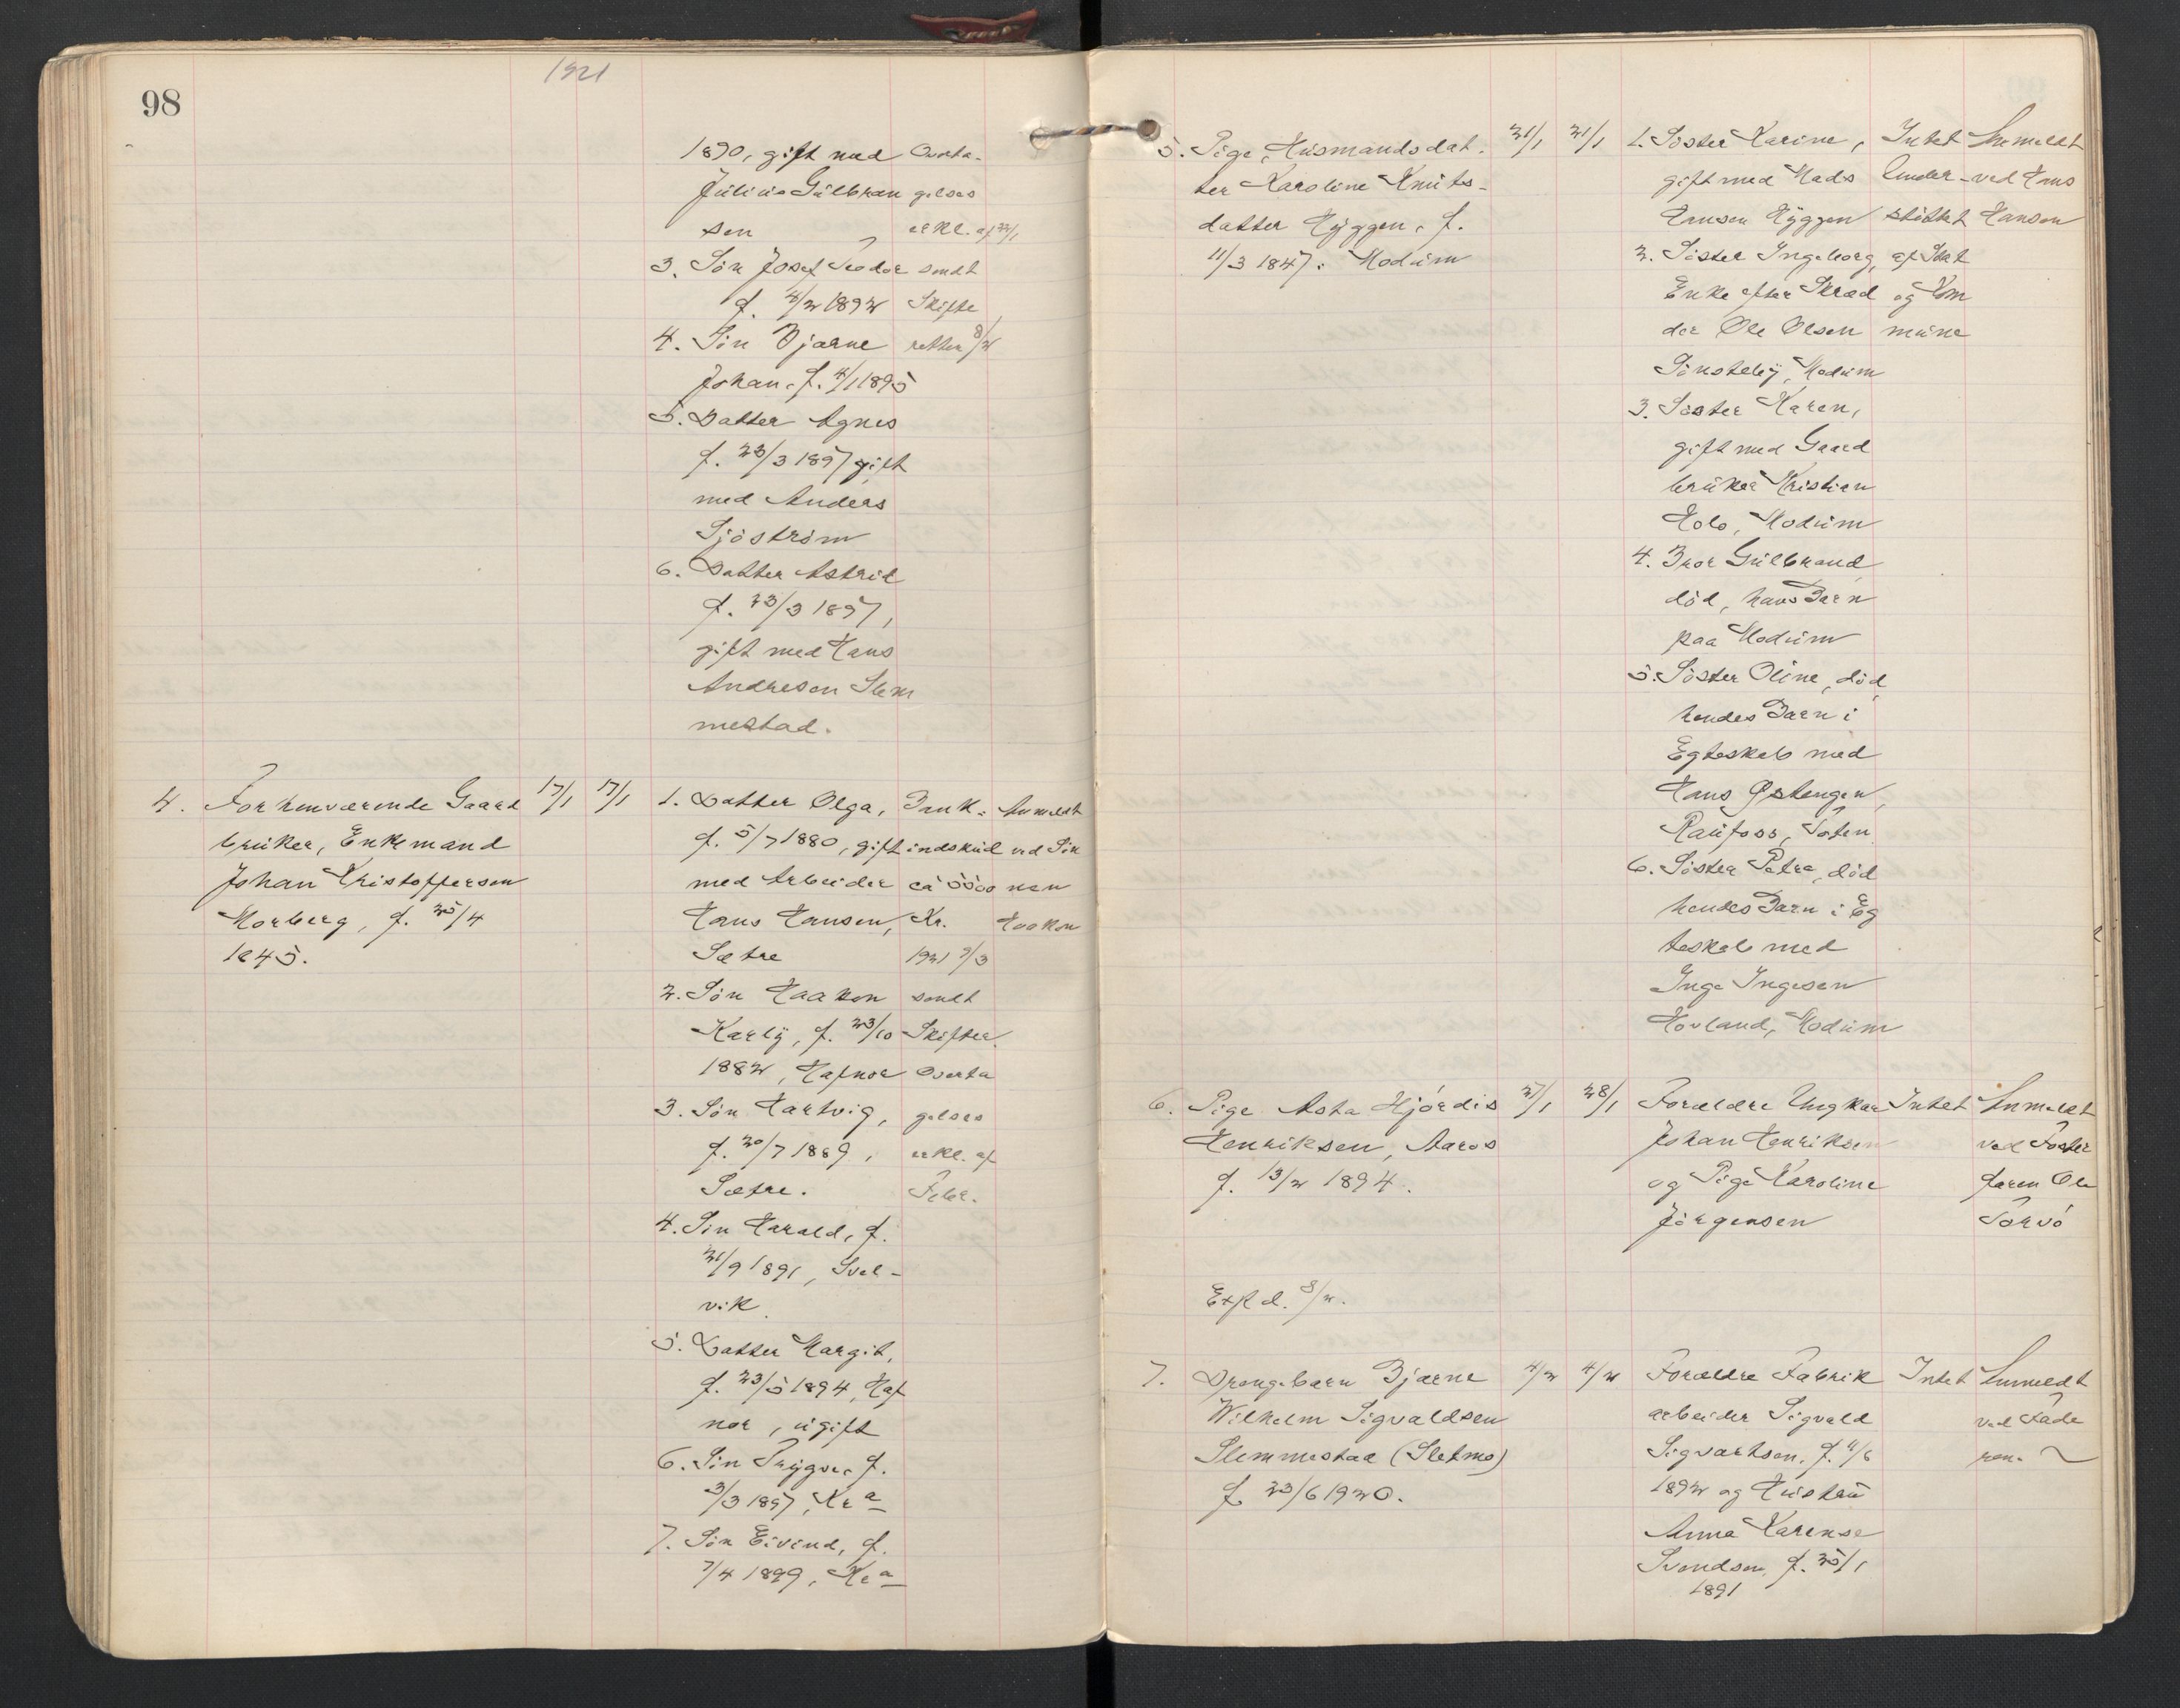 98
1921
1890, gift med
Julius Gulbran
sen
3. Søn Josef Teodor
f. 4/2 1892
4. Søn Bjarne
Johan, f. 4/1 1895
5. Datter Agnes
f. 23/3 1897 gift
med Anders
Sjöström
6. Datter Astrid
f. 23/3 1897,
gift med Hans
Andresen Slem
mestad.
Overta-
gelses
erkl. af 22/1
sendt
Skifte
retten 8/2
4. Forhenværende Gaard
bruker, Enkemand
Johan Kristoffersen
Morberg, f. 25/4
1845.
17/1 17/1
1. Datter Olga,
f. 5/7 1880, gift
med Arbeider
Hans Hansen,
Sætre
2. Søn Haakon
Karly, f. 23/10
1882, Hafnor
3. Søn Hartvig,
f. 20/7 1889,
Sætre.
4. Søn Harald, f.
21/9 1891, Svel-
vik
5. Datter Margit,
f. 23/5 1894, Haf
nor, ugift
6. Søn Trygve, f.
3/3 1897, Kra
7. Søn Eivind, f.
7/4 1899, Kra
Bank-
indskud
ca 5500
Kr.
1921 9/3
sendt
Skifter.
Overta
gelses
erkl. af
Febr.
Anmeldt
ved Søn
nen
Haakon
5. Pige, Husmandsdat-
ter Karoline Knuts-
datter Hyggen, f.
11/3 1847. Modum
21/1 21/1
1. Søster Karine,
gift med Mads
Hansen Hyggen
2. Søster Ingeborg,
Enke efter Skræd
der Ole Olsen
Sønsteby, Modum
3. Søster Karen,
gift med Gaard
bruker Kristian
Holo, Modum
4. Bror Gulbrand
død, hans Barn
paa Modum
5. Søster Oline, død,
hendes Barn i
Egteskab med
Hans Østengen,
Raufoss, Toten
6. Søster Petra, død
hendes Barn i Eg
teskab med
Inge Ingesen
Hovland, Modum
Intet
Under-
støttet
af Stat
og Kom
mune
Anmeldt
ved Hans
Hansen
6. Pige Asta Hjørdis
Henriksen, Aaros
f. 13/2 1894.
Expd. 8/2.
27/1 28/1
Forældre Ungkar
Johan Henriksen
og Pige Karoline
Jørgensen
Intet
Anmeldt
ved Foster
faren Ole
Torvø
7. Drengebarn Bjarne
Wilhelm Sigvaldsen
Slemmestad (Sletmo)
f. 23/6 1920.
4/2 4/2
Forældre Fabrik
arbeider Sigvald
Sigvartsen, f. 4/6
1892 og Hustru
Anna Karense
Svendsen, f. 25/1
1891
Intet
Anmeldt
ved Fade
ren.